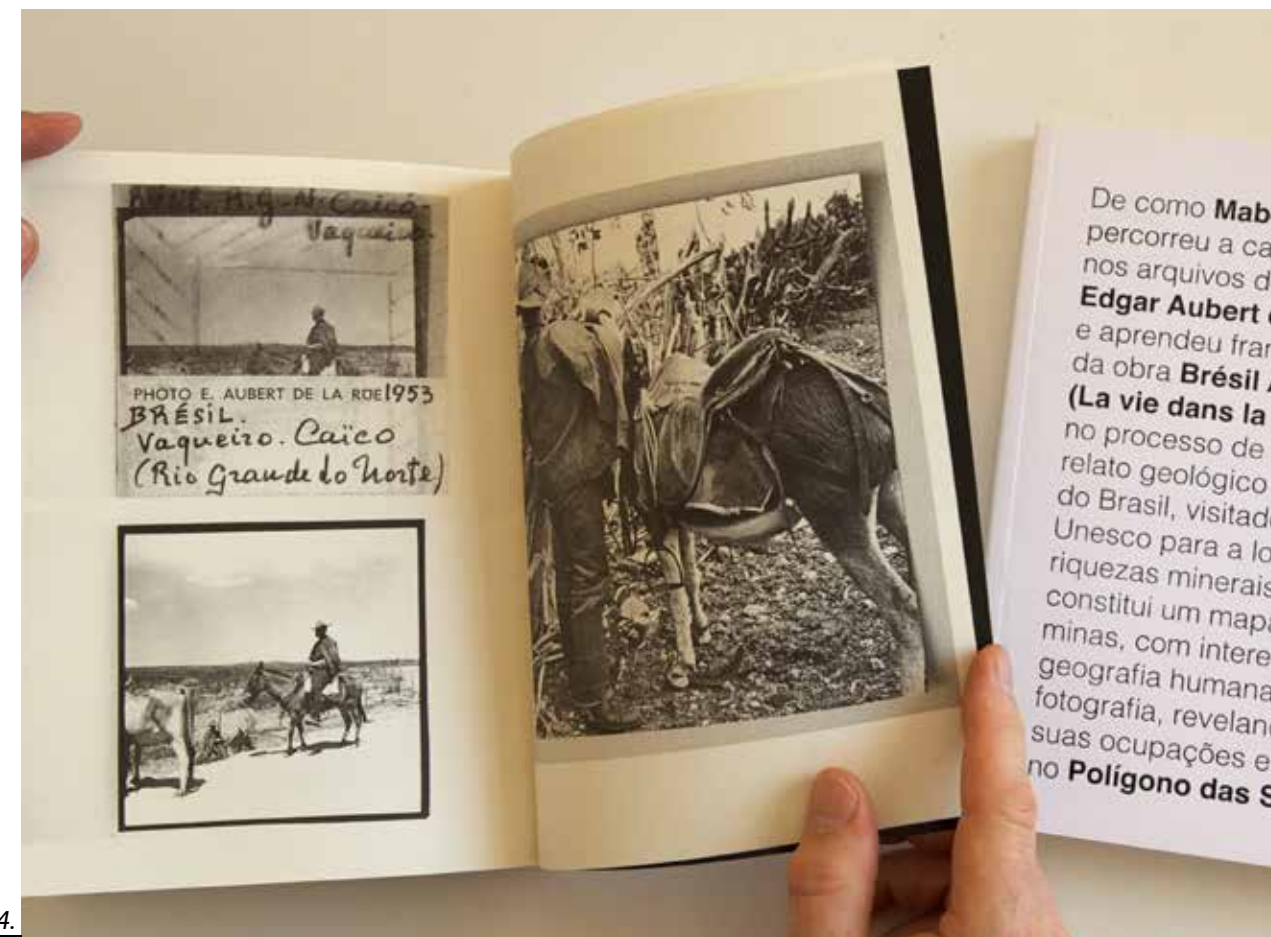 R.G.N. Caicó-
Vaqueiro.
PHOTO E. AUBERT DE LA RÜE 1953
BRÉSIL.
Vaqueiro. Caïco
(Rio Grande do Norte)
De como Mab
percorreu a ca
nos arquivos d
Edgar Aubert
e aprendeu fran
da obra Brésil
(La vie dans la
no processo de
relato geológico
do Brasil, visitad
Unesco para a lo
riquezas minerais
constitui um mapa
minas, com intere
geografia humana
fotografia, reveland
suas ocupações e
no Polígono das S
4.